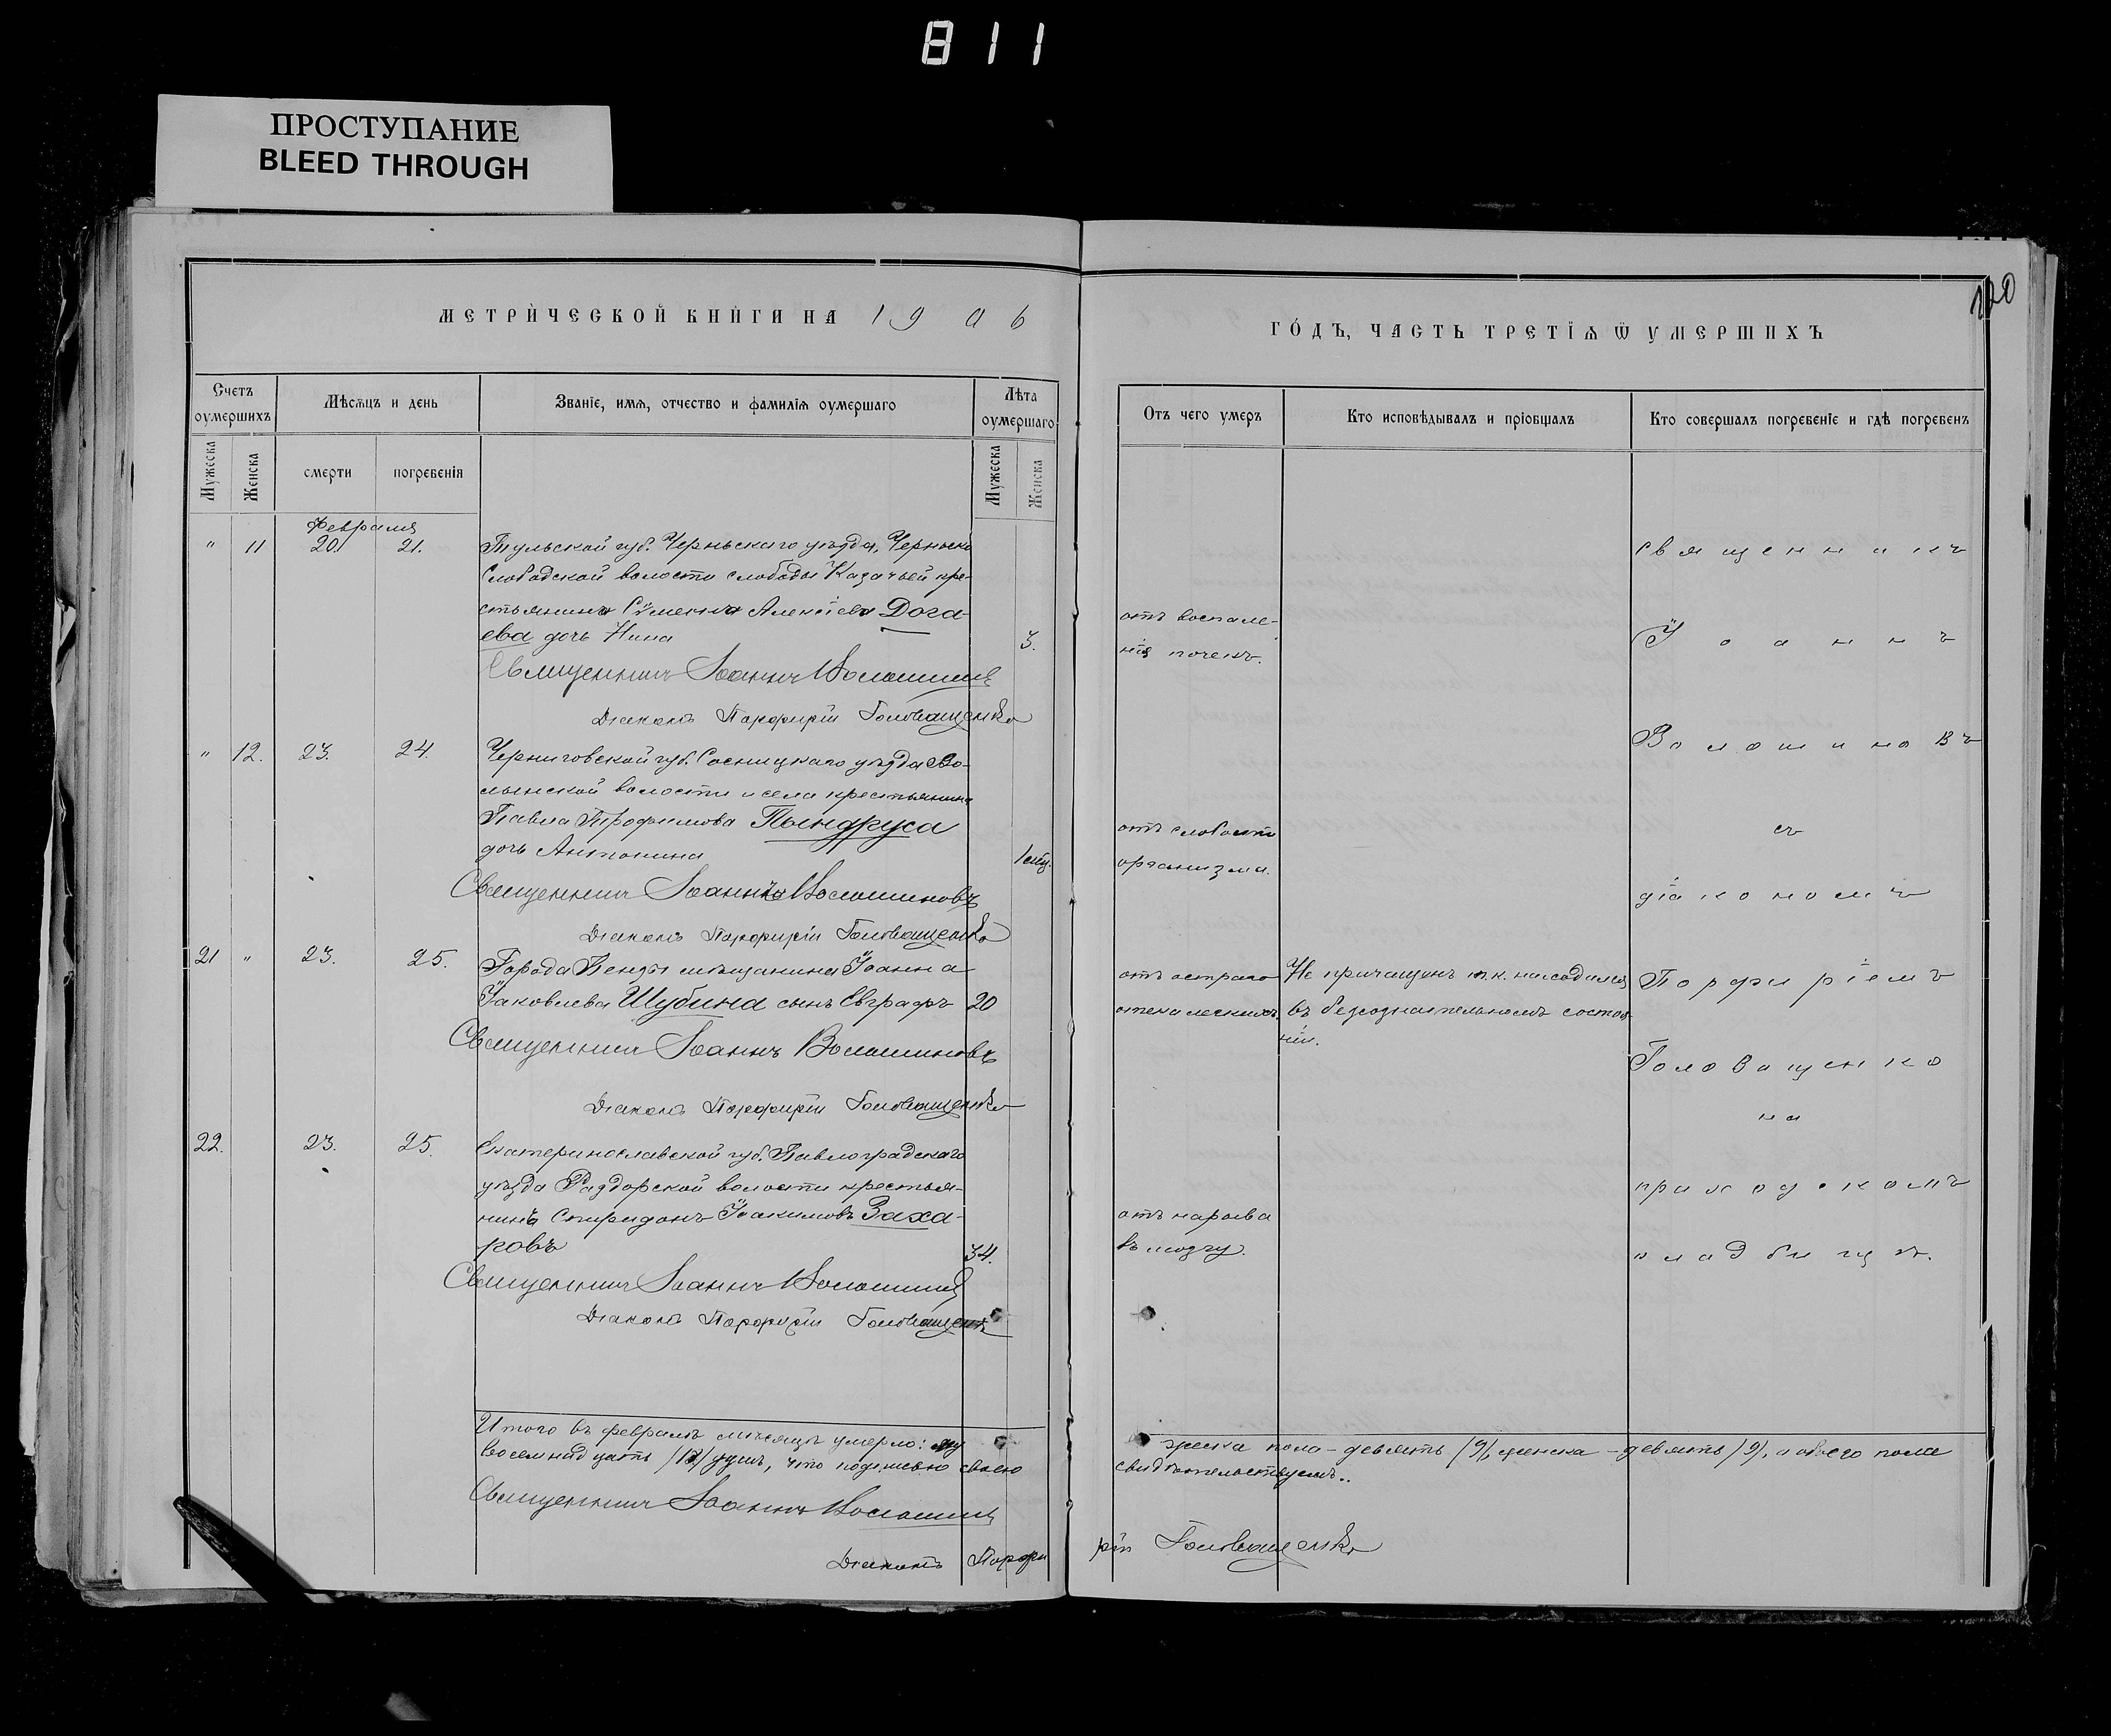 811
ПРОСТУПАНИЕ
BLEED THROUGH
МЕТРИЧЕСКОЙ КНИГИ НА 1906
ГОДЪ, ЧАСТЬ ТРЕТІѦ Ѿ УМЕРШИХЪ
Счетъ оумершихъ
Мѣсѧцъ и день
Званіе, имѧ, отчество и фамиліѧ оумершаго
Лѣта оумершаго
Отъ чего умеръ
Кто исповѣдывалъ и пріобщалъ
Кто совершалъ погребеніе и гдѣ погребенъ
Мужеска
Женска
смерти
погребенія
Мужеска
Женска
Февраля
" 11 20. 21. Тульской губ. Черньскаго уѣзда, Черньско
Слободской волости слободы Казачьей кре-
стьянина Сѵмеона Алексіева Дога-
ева дочь Нина 3.
отъ воспале-
нія почекъ.
Священникъ Іоаннъ Волошинъ
Діаконъ Порфирій Головащенко
" 12. 23. 24. Черниговской губ. Сосницкаго уѣзда Во-
лынской волости и села крестьянина
Павла Трофимова Пындруса
дочь Антонина 1 мѣс.
отъ слабости
организма.
Священникъ Іоаннъ Волошиновъ
Діаконъ Порфирій Головащенко
21 " 23. 25. Города Бендъ мѣщанина Іоанна
Іаковлева Шубина сынъ Евграфъ 20
отъ остраго
отека легкихъ.
Не причащенъ т.к. находился
въ безсознательномъ состоя-
ніи.
Священникъ Іоаннъ Волошиновъ
Діаконъ Порфирій Головащенко
22. 23. 25. Екатеринославской губ. Павлоградскаго
уѣзда Раздорской волости крестья-
нинъ Спиридонъ Іоакимовъ Заха-
ровъ 34.
отъ нарыва
въ мозгу.
Священникъ Іоаннъ Волошинъ
Діаконъ Порфирій Головащенко
священникъ
Іоаннъ
Волошиновъ
съ
діакономъ
Порфиріемъ
Головащенко
на
приходскомъ
кладбищѣ.
Итого въ февралѣ мѣсяцѣ умерло: му
жеска пола – девять /9/, женска – девять /9/, а обоего пола
восемнадцать /18/ душъ, что подписью своею
свидѣтельствуемъ.
Священникъ Іоаннъ Волошинъ
Діаконъ Порфи
рій Головащенко